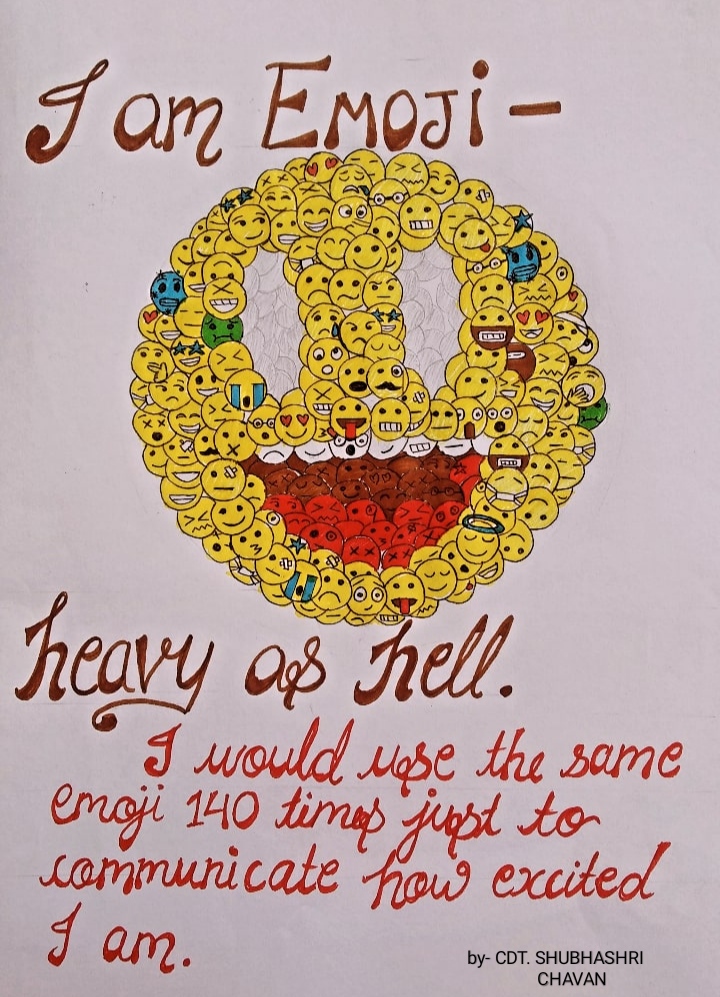 I am EMOJI -
heavy as hell.
I would use the same
emoji 140 times just to
communicate how excited
I am.
by- CDT. SHUBHASHRI
CHAVAN